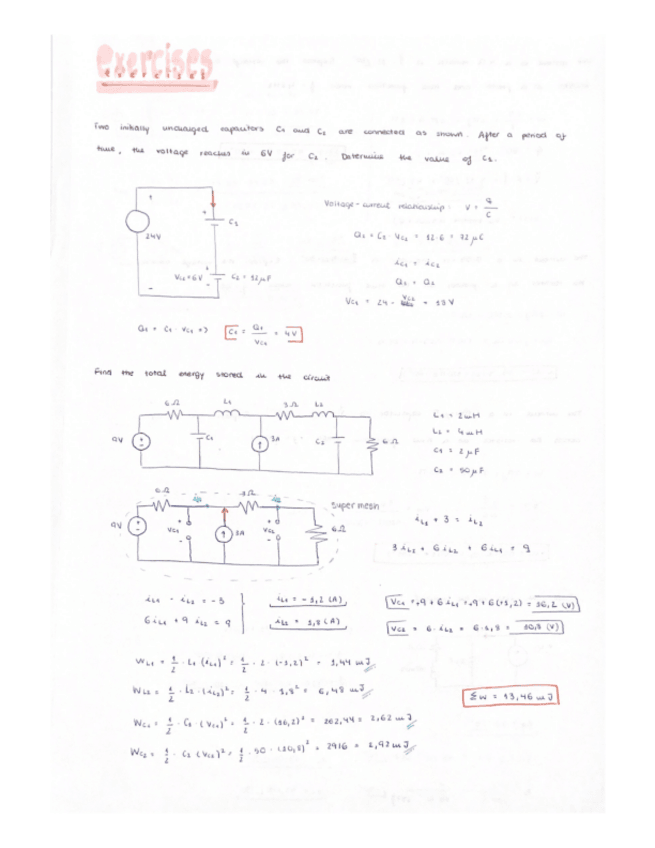 exercises
exercises
Two initially uncharged capacitors C1 and C2 are connected as shown. After a period of
time, the voltage reaches is 6V for C2. Determine the value of C1.
24V
C1
VC2=6V
C2 = 12μF
Voltage-current relationship: V = q/C
Q2 = C2 · VC2 = 12·6 = 72 μC
iC1 = iC2
Q1 = Q2
VC1 = 24 - = 18 V
Q1 = C1 · VC1 => C1 = Q1/VC1 = 4V
Find the total energy stored in the circuit
6Ω L1 3Ω L2
9V C1 3A C2 6Ω
L1 = 2mH
L2 = 4mH
C1 = 2μF
C2 = 50μF
6Ω iL1 3Ω iL2
super mesh
9V VC1 3A VC2 6Ω
iL1 + 3 = iL2
3 iL2 + 6 iL2 + 6 iL1 = 9
iL1 - iL2 = -3
6iL1 + 9 iL2 = 9
iL1 = -1,2 (A)
iL2 = 1,8 (A)
VC1 = +9 + 6 iL1 = +9 + 6(+1,2) = 16,2 (V)
VC2 = 6 · iL2 = 6·1,8 = 10,8 (V)
WL1 = 1/2 · L1 (iL1)² = 1/2 · 2 · (-1,2)² = 1,44 mJ
WL2 = 1/2 · L2 · (iL2)² = 1/2 · 4 · 1,8² = 6,48 mJ
WC1 = 1/2 · C1 · (VC1)² = 1/2 · 2 · (16,2)² = 262,44 = 2,62 mJ
WC2 = 1/2 · C2 (VC2)² = 1/2 · 50 · (10,8)² = 2916 = 2,92 mJ
Σw = 13,46 mJ